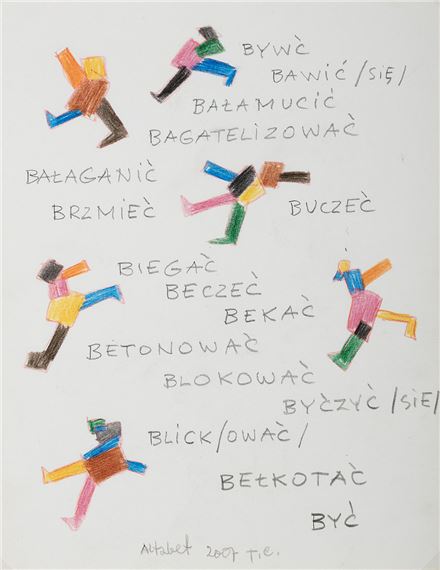 BYWĆ
BAWIĆ /SIĘ/
BAŁAMUCIĆ
BAGATELIZOWAĆ
BAŁAGANIĆ
BRZMIEĆ BUCZEĆ
BIEGAĆ
BECZEĆ
BEKAĆ
BETONOWAĆ
BLOKOWAĆ
BYCZYĆ /SIĘ/
BLICK/OWAĆ/
BEŁKOTAĆ
BYĆ
Alfabet 2007 T.C.